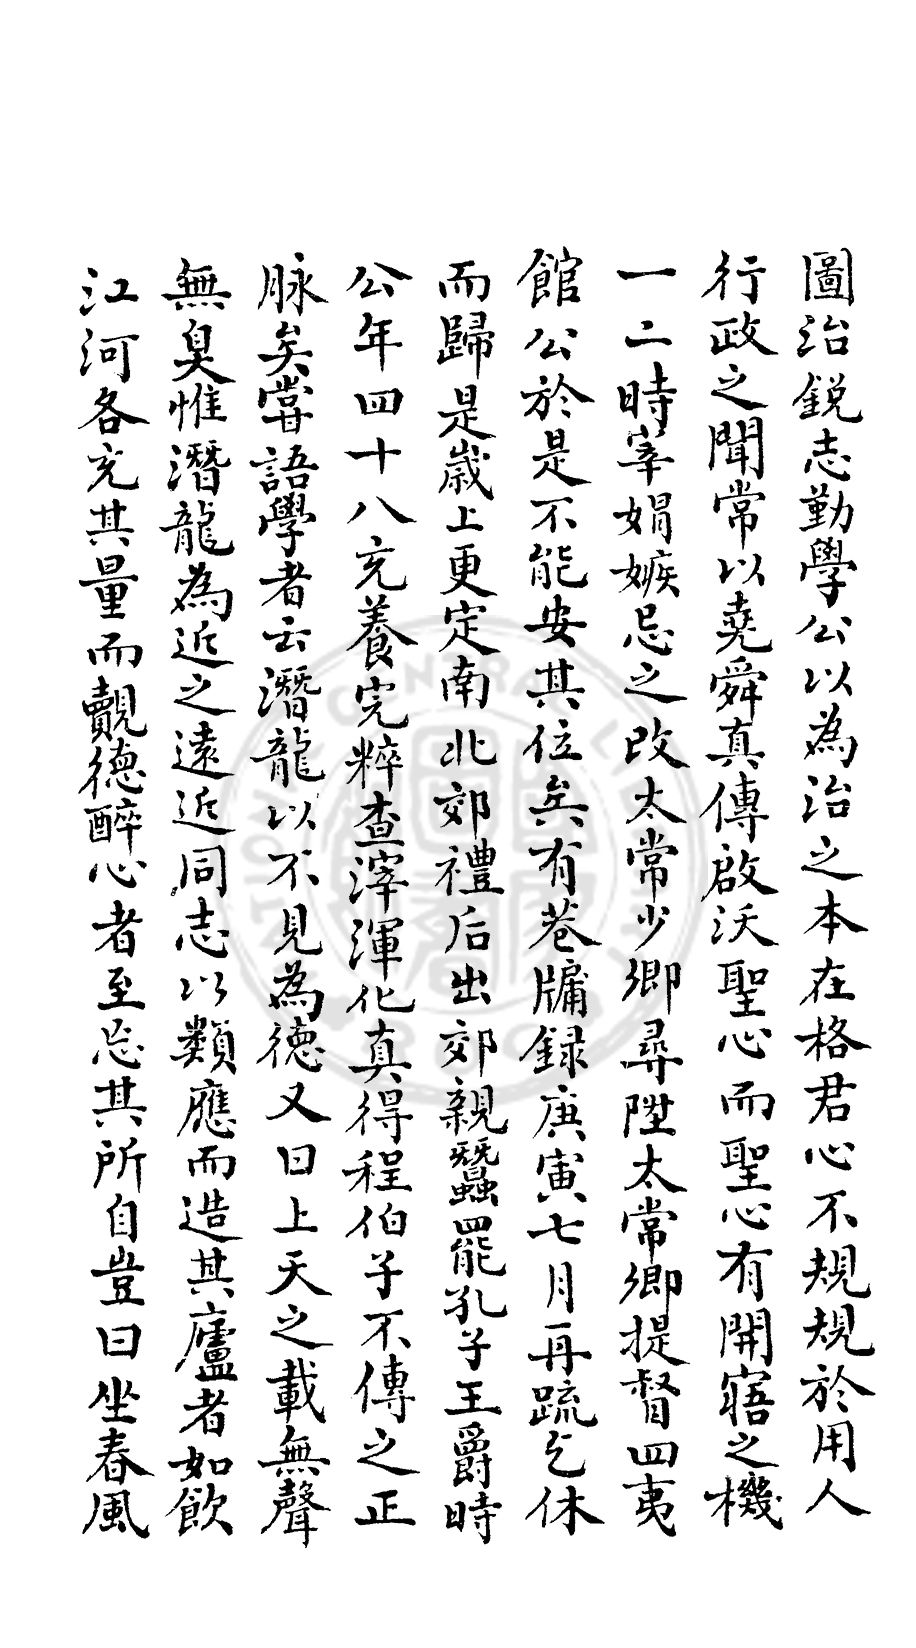 圖治鋭志勤學公以為治之本在格君心不規規於用人
行政之聞常以堯舜真傳啟沃聖心而聖心有開寤之機
一二時宰娟嫉忌之改太常少卿尋陞太常卿提督四夷
館公於是不能安其位矣有菴牗録庚寅七月再疏乞休
而歸是歳上更定南北郊禮后出郊親蠶罷孔子王爵時
公年四十八充養完粹查滓渾化真得程伯子不傳之正
脉矣嘗語學者云潛龍以不見為德又曰上天之載無聲
無臭惟潛龍為近之遠近同志以類應而造其廬者如飲
江河各充其量而覿德醉心者至忘其所自豈曰坐春風